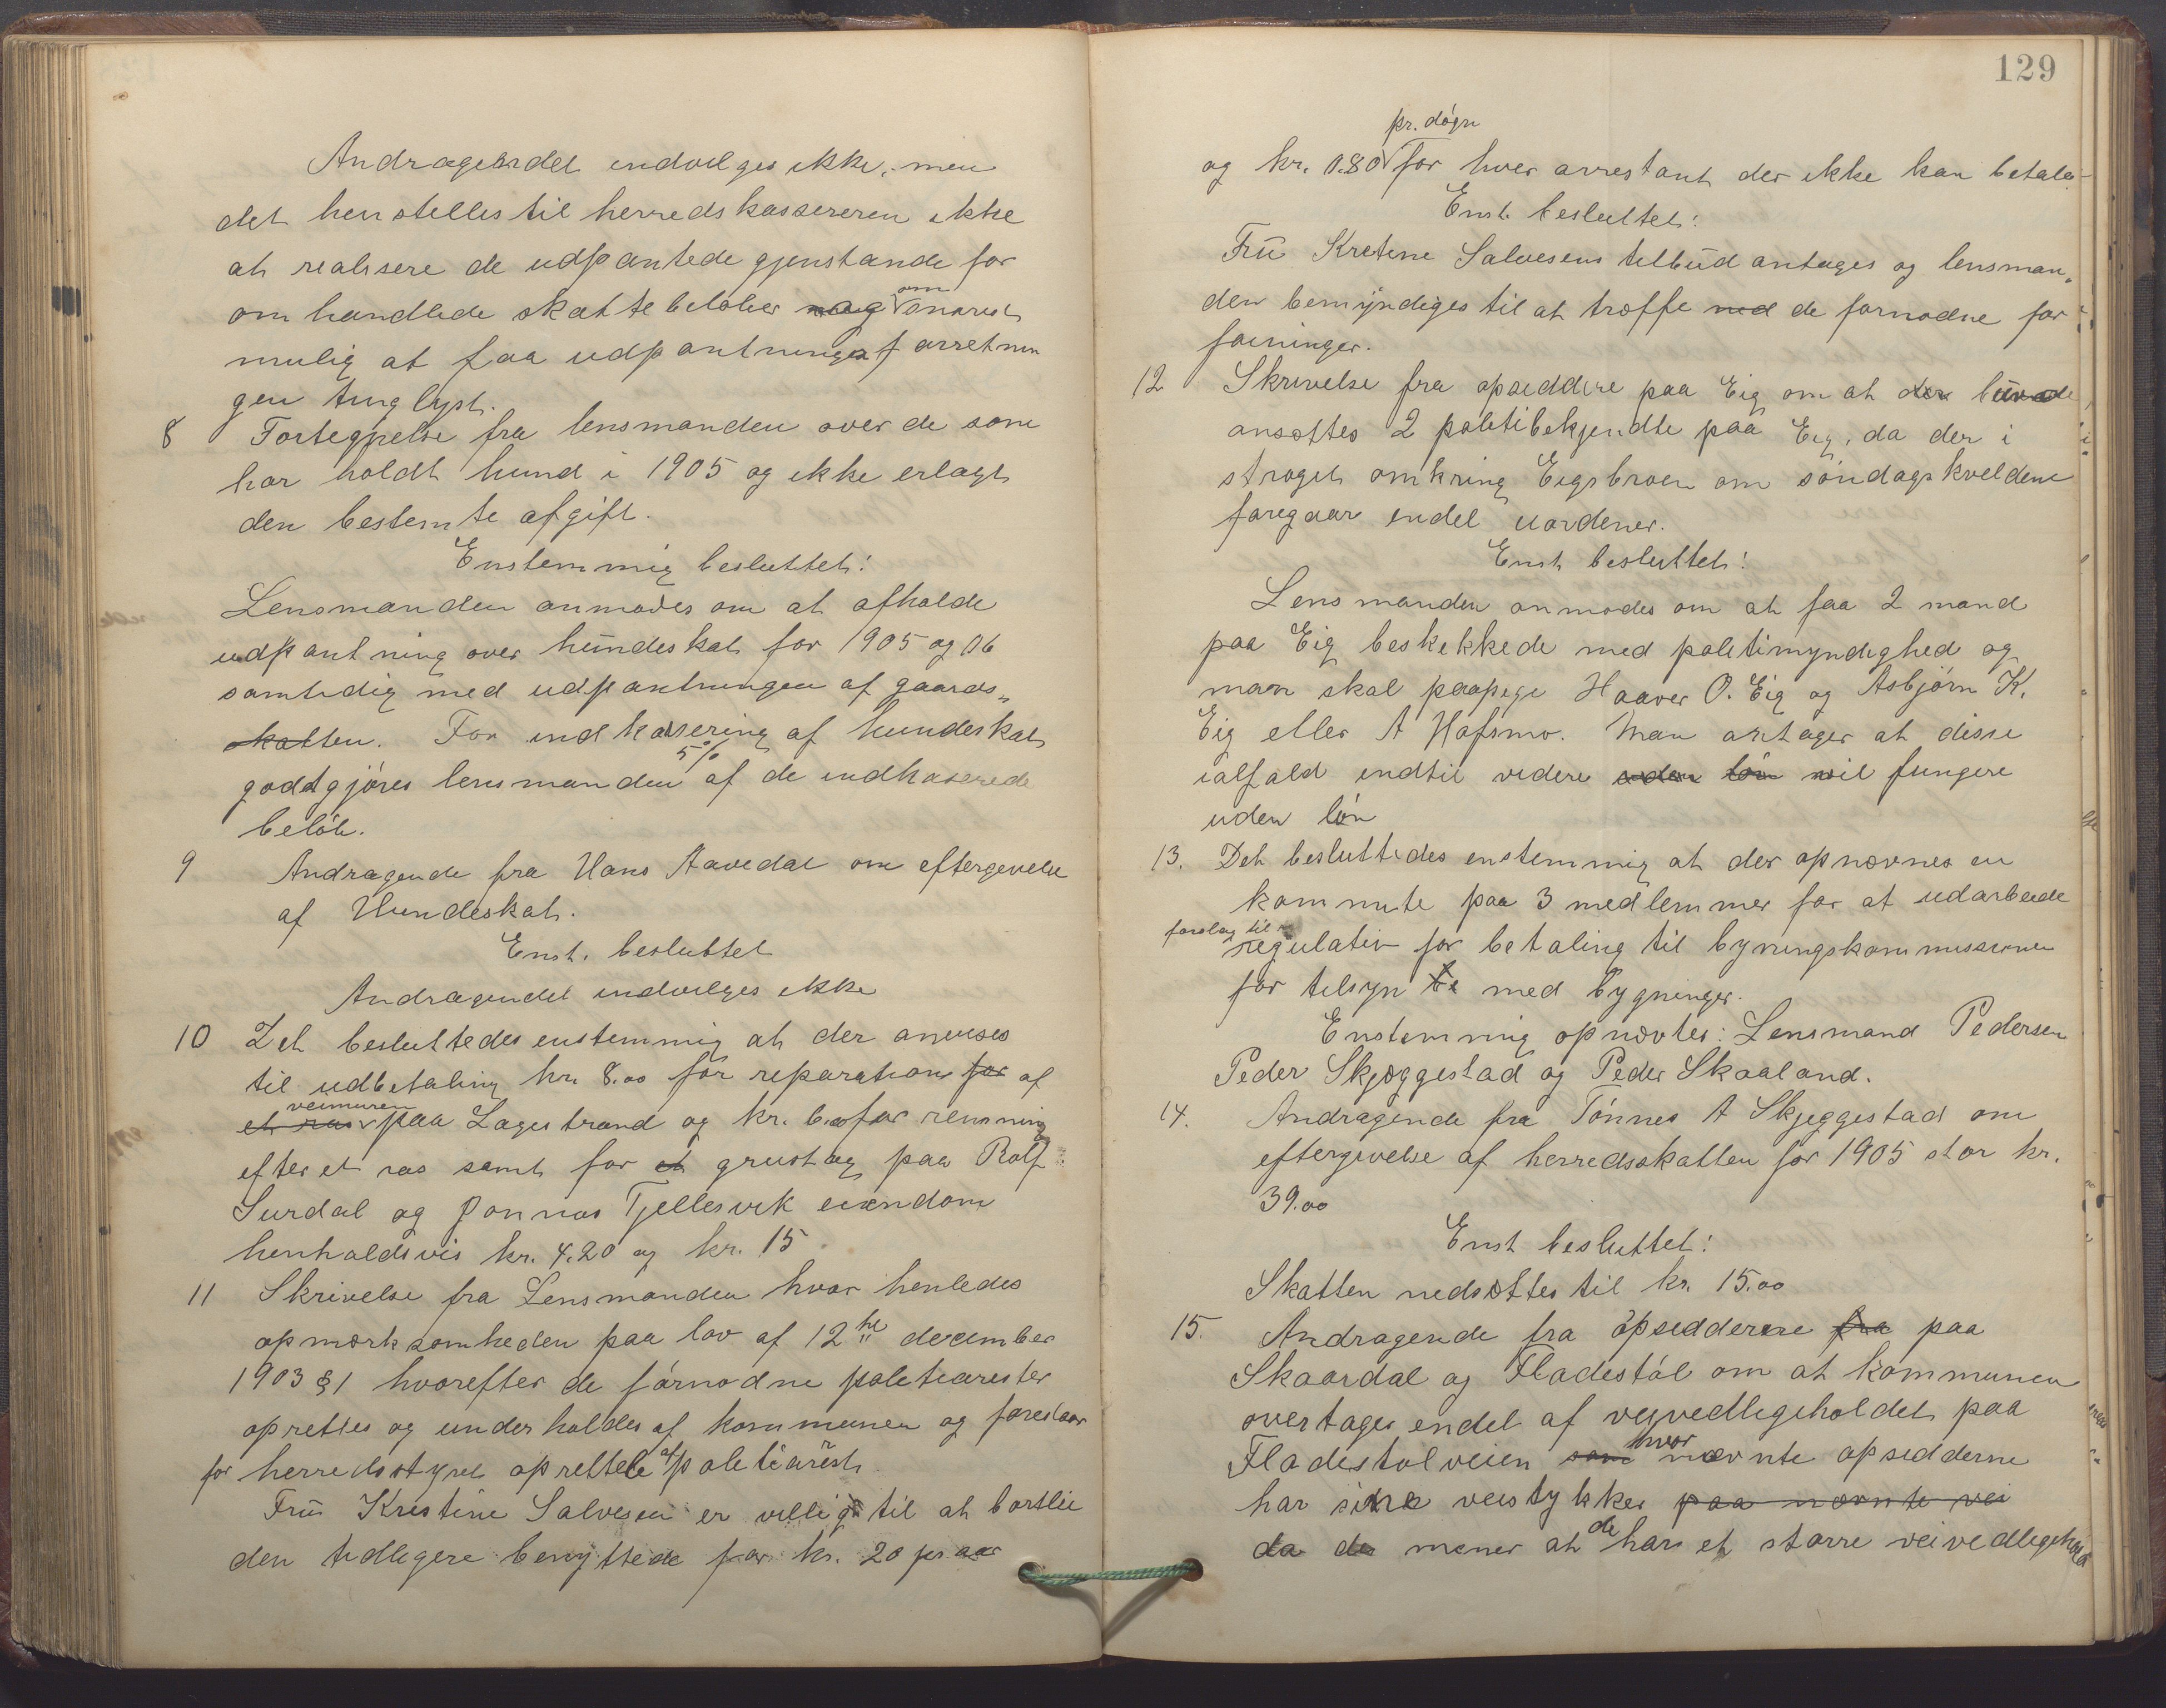 Andragendet indvilges ikke, men
det henstilles til herredskassereren ikke
at realisere de udpantede gjenstande for
omhandlede skattebeløber om snarest
mulig at faa udpantningsforretnin
gen tinglyst.
8 Fortegnelse fra lensmanden over de som
har holdt hund i 1905 og ikke erlagt
den bestemte afgift.
Enstemmig besluttet:
Lensmanden anmodes om at afholde
udpantning over hundeskat for 1905 og 06
samtidig med udpantningen af gaards-
skatten. For indkassering af hundeskat
godtgjöres lensmanden 5% af de indkaserede
belöb.
9 Andragende fra Hans Aavedal om eftergivelse
af Hundeskat.
Enst. besluttet
Andragendet indvilges ikke
10 Det besluttedes enstemmig at der anvises
til udbetaling kr. 8.00 for reparation for af
et ras veimuren paa Lagestrand og kr. 6.00 for rensning
efter et ras samt for et grustag paa Rolf
Surdal og Jonnas Tjellesvik eiendom
henholdsvis kr. 4.20 og kr. 15
11 Skrivelse fra Lensmanden hvor henledes
opmærksomheden paa lov af 12te december
1903 § 1 hvorefter de fornødne politiarester
oprettes og underholdes af kommunen og foreslaar
for herredsstyret oprettelse af politiarest.
Fru Kristine Salvesen er villig til at bortleie
den tidligere benyttede for kr. 20 pr aar
129
og kr. 0.80 pr. dógn for hver arrestant der ikke kan betale.
Enst. besluttet:
Fru Kristine Salvesens tilbud antages og lensman-
den bemyndiges til at træffe med de fornødne for
føininger.
12 Skrivelse fra opsiddere paa Eig om at der burde
ansættes 2 politibekjendte paa Eig, da der i
strøget omkring Eigsbroen om søndagskveldene
foregaar endel uordener.
Enst besluttet:
Lensmanden anmodes om at faa 2 mand
paa Eig beskikkede med politimyndighed og
man skal paapege Haaver O. Eig og Asbjørn K.
Eig eller A Hafsmo. Man antager at disse
ialfald indtil videre uden lön vil fungere
uden lön
13. Det besluttedes enstemmig at der opnævnes en
kommite paa 3 medlemmer for at udarbeide
forslag til regulativ for betaling til bygningskommissionen
for tilsyn med bygninger.
Enstemmig opnævtes: Lensmand Pedersen
Peder Skjæggestad og Peder Skaaland.
14. Andragende fra Tönnes A Skjeggestad om
eftergivelse af herredsskatten for 1905 stor kr.
39.00
Enst besluttet:
Skatten nedsættes til kr. 15.00
15. Andragende fra opsidderne fra paa
Skaardal og Fladestöl om at kommunen
overtager endel af veivedligeholdet paa
Fladestolveien som hvor nævnte opsidderne
har sine veistykker paa nævnte vei
da de mener at de har et større veivedligehold